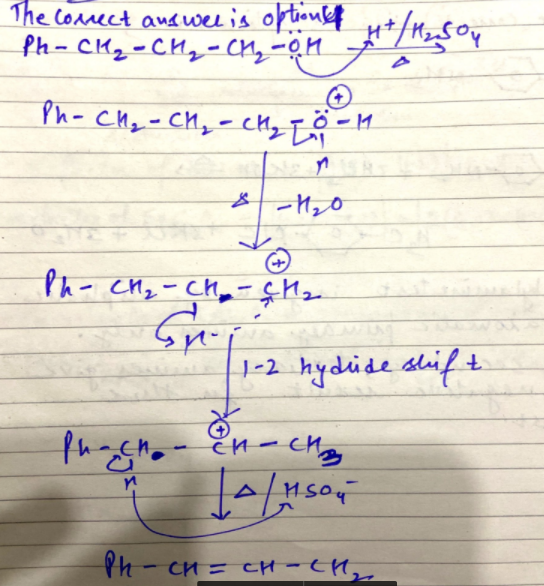 The correct answer is option
Ph - CH₂ - CH₂ - CH₂ - ÖH H⁺/H₂SO₄
Δ
⊕
Ph - CH₂ - CH₂ - CH₂ - Ö - H
H
Δ -H₂O
⊕
Ph - CH₂ - CH - CH₂
H
1-2 hydride shift
⊕
Ph - CH - CH - CH₃
H
Δ/HSO₄⁻
Ph - CH = CH - CH₂